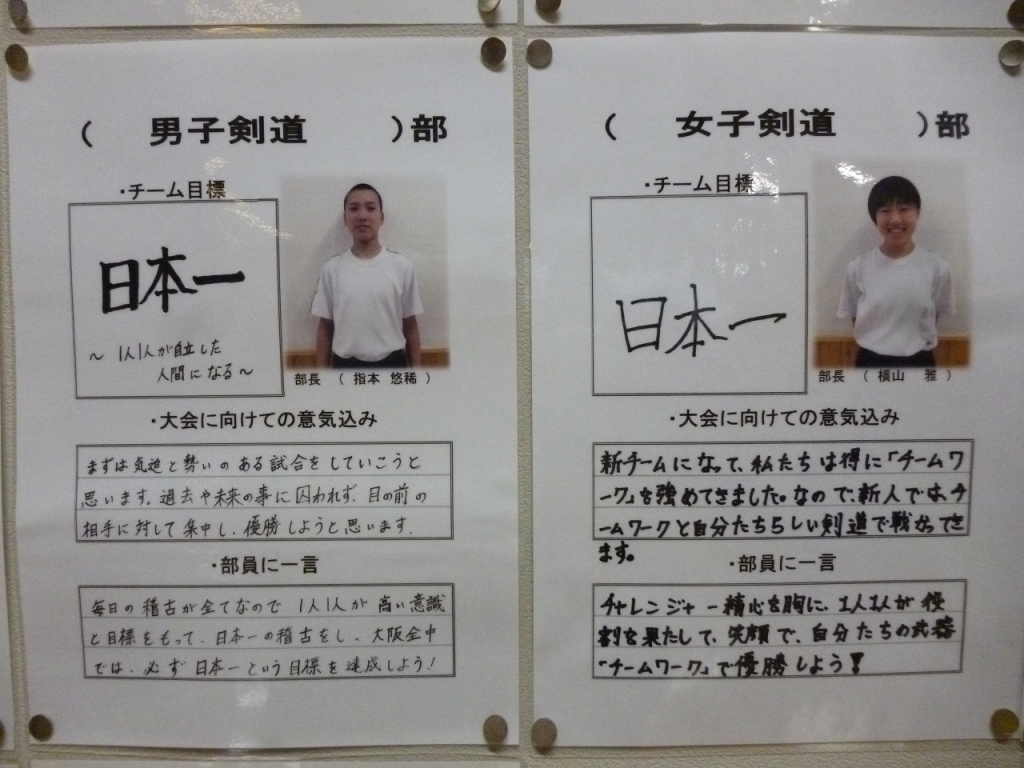 ( 男子剣道 )部
・チーム目標
日本一
~ 1人1人が自立した
人間になる~
部長 ( 指本 悠稀 )
・大会に向けての意気込み
まずは気迫と勢いのある試合をしていこうと
思います。過去や未来の事に囚われず、目の前の
相手に対して集中し、優勝しようと思います。
・部員に一言
毎日の稽古が全てなので 1人1人が高い意識
と目標をもって、日本一の稽古をし、大阪全中
では、必ず日本一という目標を達成しよう!
( 女子剣道 )部
・チーム目標
日本一
部長 ( 横山 雅 )
・大会に向けての意気込み
新チームになって、私たちは得に「チームワ
ーク」を強めてきました。なので、新人では、チ
ームワークと自分たちらしい剣道で戦ってき
ます。
・部員に一言
チャレンジャー精心を胸に、1人1人が役
割を果たして、笑顔で、自分たちの武器
「チームワーク」で優勝しよう!